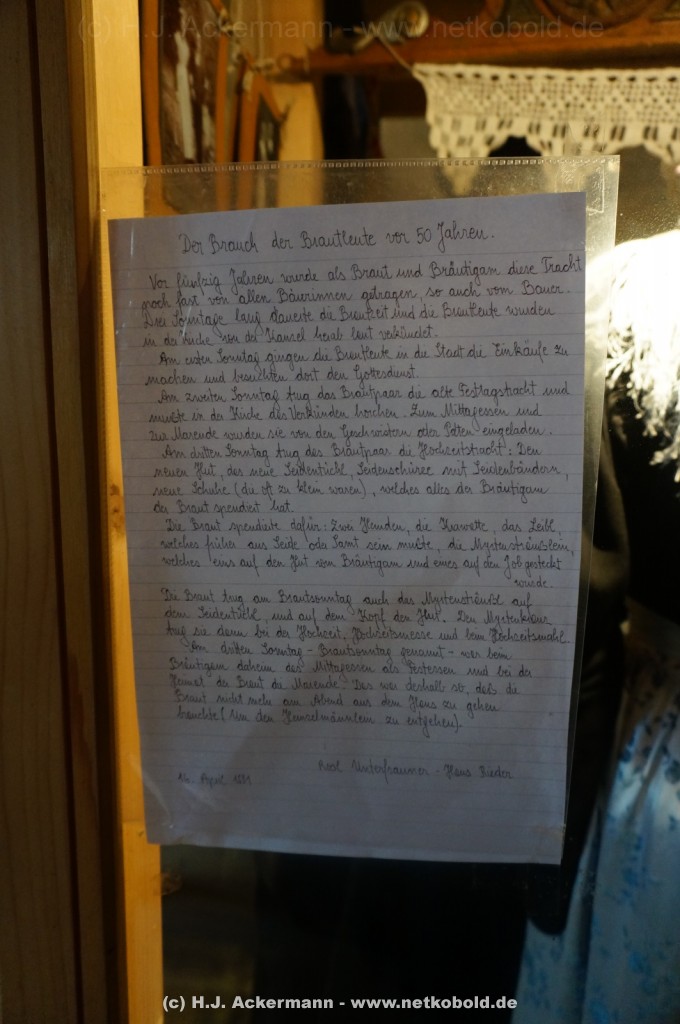 (c) H.J. Ackermann - www.netkobold.de
Der Brauch der Brautleute vor 50 Jahren.
Vor fünfzig Jahren wurde als Braut und Bräutigam diese Tracht
noch fast von allen Bäuerinnen getragen, so auch vom Bauer.
Drei Sonntage lang dauerte die Brautzeit und die Brautleute wurden
in der Kirche von der Kanzel herab laut verkündet.
Am ersten Sonntag gingen die Brautleute in die Stadt die Einkäufe zu
machen und besuchten dort den Gottesdienst.
Am zweiten Sonntag trug das Brautpaar die alte Festtagstracht und
mußte in der Kirche des Verkünden horchen. Zum Mittagessen und
zur Marende wurden sie von den Geschwistern oder Paten eingeladen.
Am dritten Sonntag trug das Brautpaar die Hochzeitstracht: Den
neuen Hut, das neue Seidentüchl, Seidenschürze mit Seidenbändern,
neue Schuhe (die oft zu klein waren), welches alles der Bräutigam
der Braut spendiert hat.
Die Braut spendierte dafür: Zwei Hemden, die Krawatte, das Leibl,
welches früher aus Seide oder Samt sein mußte, die Myrtensträußlein,
welches eins auf den Hut vom Bräutigam und eines auf den gesteckt
wurde.
Die Braut trug am Brautsonntag auch das Myrtensträußl auf
dem Seidentüchl, und auf dem Kopf den Hut. Den Myrtenkranz
trug sie dann bei der Hochzeit, Hochzeitsmesse und beim Hochzeitsmahl.
Am dritten Sonntag - Brautsonntag genannt - war beim
Bräutigam daheim das Mittagessen als Festessen und bei der
Heimat der Braut die Marende. Das war deshalb so, daß die
Braut nicht mehr am Abend aus dem Haus zu gehen
brauchte (Um den Hanselmännlein zu entgehen).
14. April 1991 - Hans Rieder
(c) H.J. Ackermann - www.netkobold.de